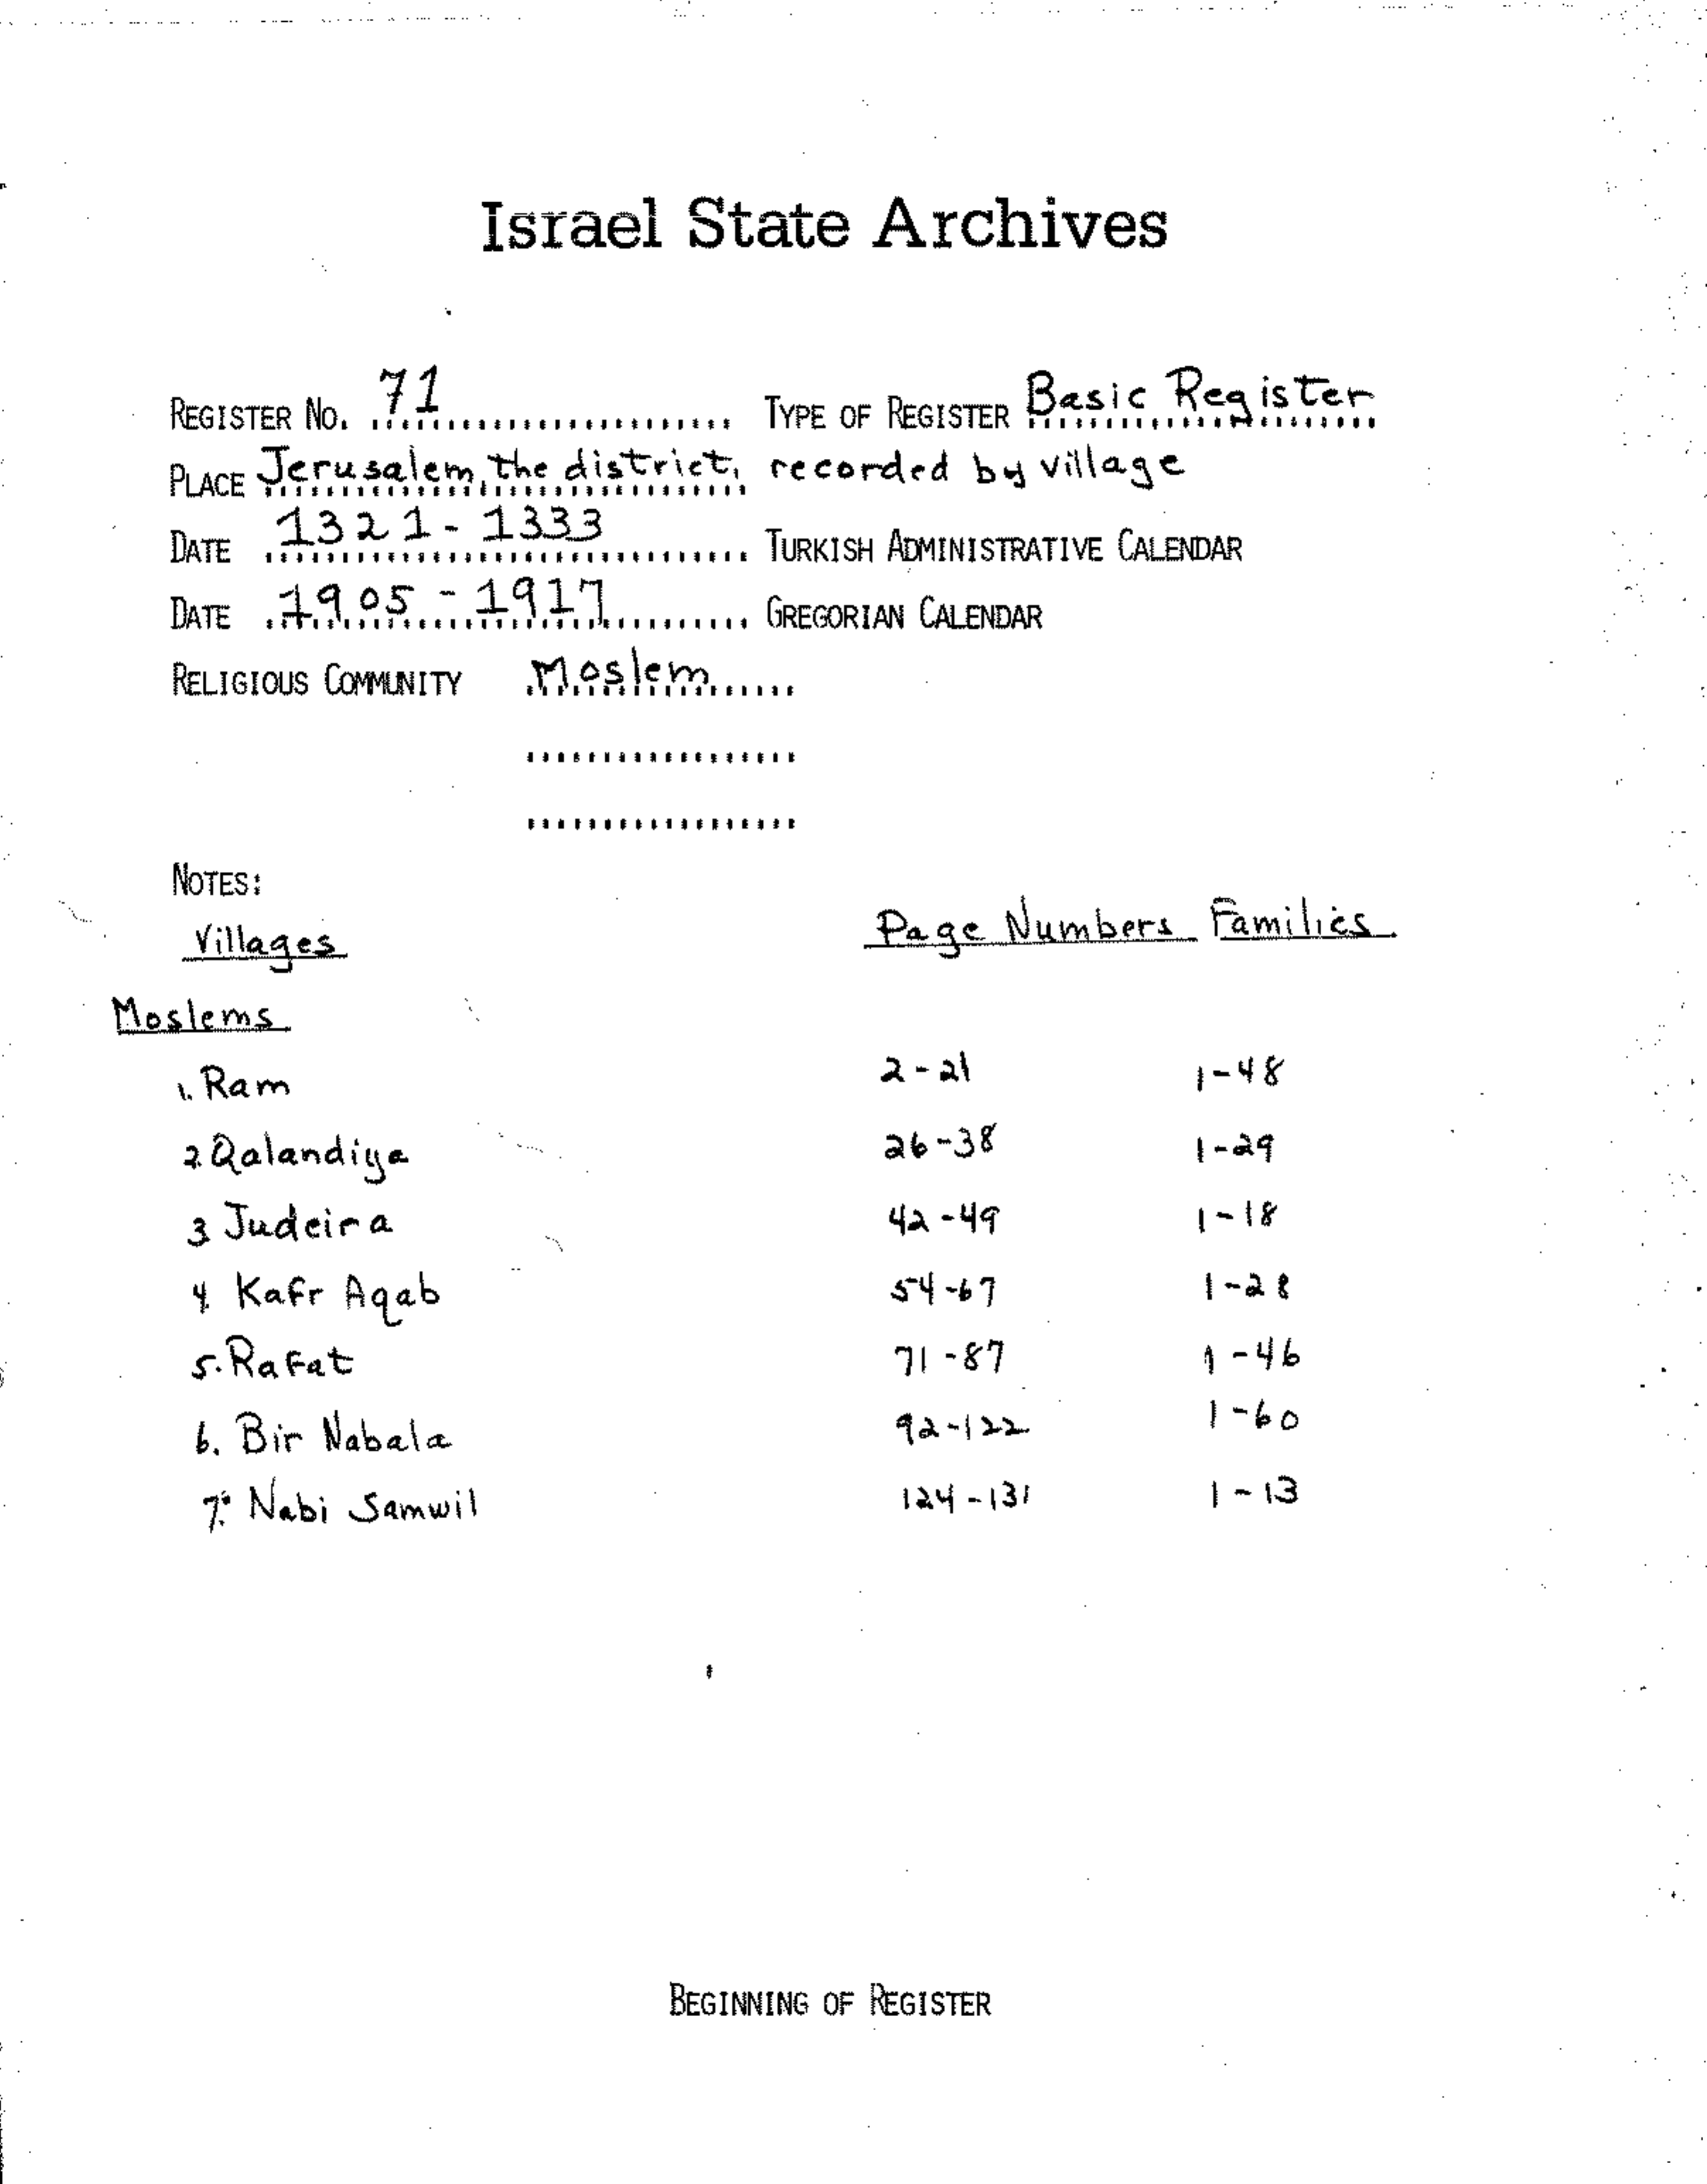 Israel State Archives
REGISTER No. 71 TYPE OF REGISTER Basic Register
PLACE Jerusalem, the district, recorded by village
DATE 1321 - 1333 TURKISH ADMINISTRATIVE CALENDAR
DATE 1905 - 1917 GREGORIAN CALENDAR
RELIGIOUS COMMUNITY Moslem
NOTES:
Villages Page Numbers Families
Moslems
1. Ram 2-21 1-48
2. Qalandiya 26-38 1-29
3. Judeira 42-49 1-18
4. Kafr Aqab 54-67 1-28
5. Rafat 71-87 1-46
6. Bir Nabala 92-122 1-60
7. Nabi Samwil 124-131 1-13
BEGINNING OF REGISTER